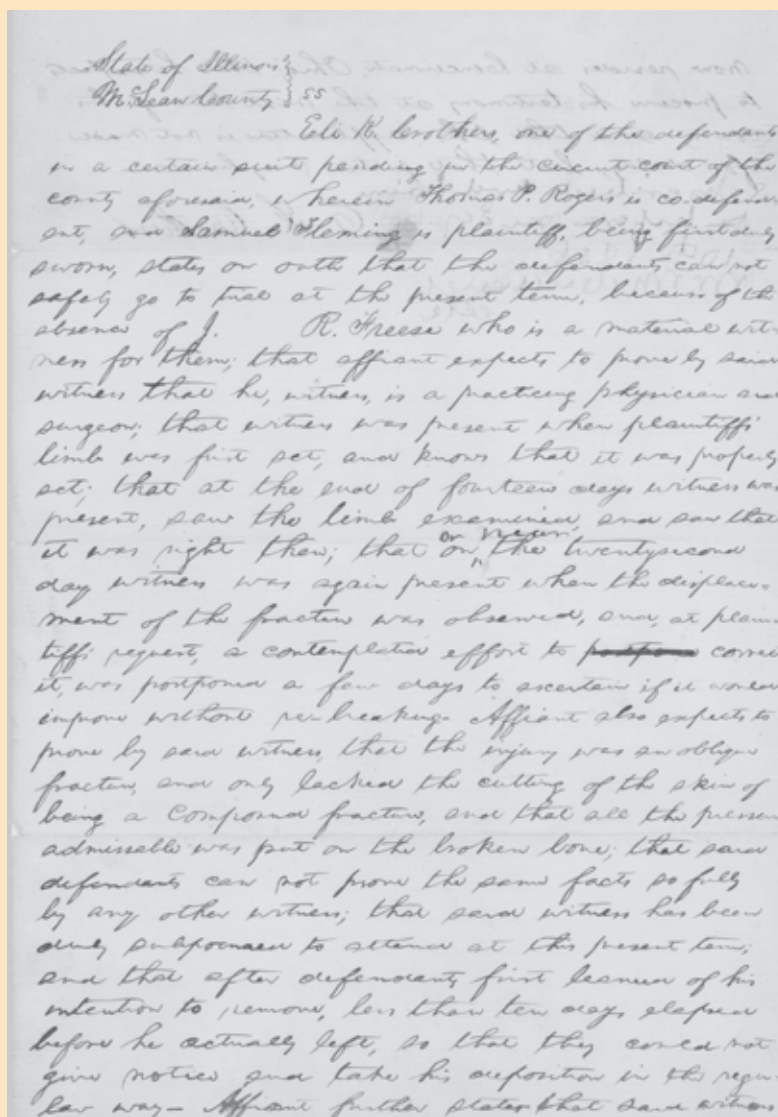 State of Illinois
McLean County } SS
Eli K. Crothers, one of the defendants
in a certain suit pending in the circuit court of the
county aforesaid, wherein Thomas P. Rogers is co-defend-
ant, and Samuel Fleming is plaintiff, being first duly
sworn, states on oath that the defendants can not
safely go to trial at the present term, because of the
absence of J. R. Freese who is a material wit-
ness for them; that affiant expects to prove by said
witness that he, witness, is a practicing physician and
surgeon; that witness was present when plaintiff's
limb was first set, and knows that it was properly
set; that at the end of fourteen days witness was
present, saw the limb examined, and saw that
it was right then; that on or near the twentysecond
day witness was again present when the displace-
ment of the fracture was observed, and, at plain-
tiffs request, a contemplated effort to correct
it, was postponed a few days to ascertain if it would
improve without re-breaking. Affiant also expects to
prove by said witness, that the injury was an oblique
fracture, and only lacked the cutting of the skin of
being a compound fracture, and that all the pressure
admissable was put on the broken bone; that said
defendants can not prove the same facts so fully
by any other witness; that said witness has been
duly subpoenaed to attend at this present term;
and that after defendants first learned of his
intention to remove, less than ten days elapsed
before he actually left, so that they could not
give notice and take his deposition in the regu-
lar way— Affiant further states that said witness